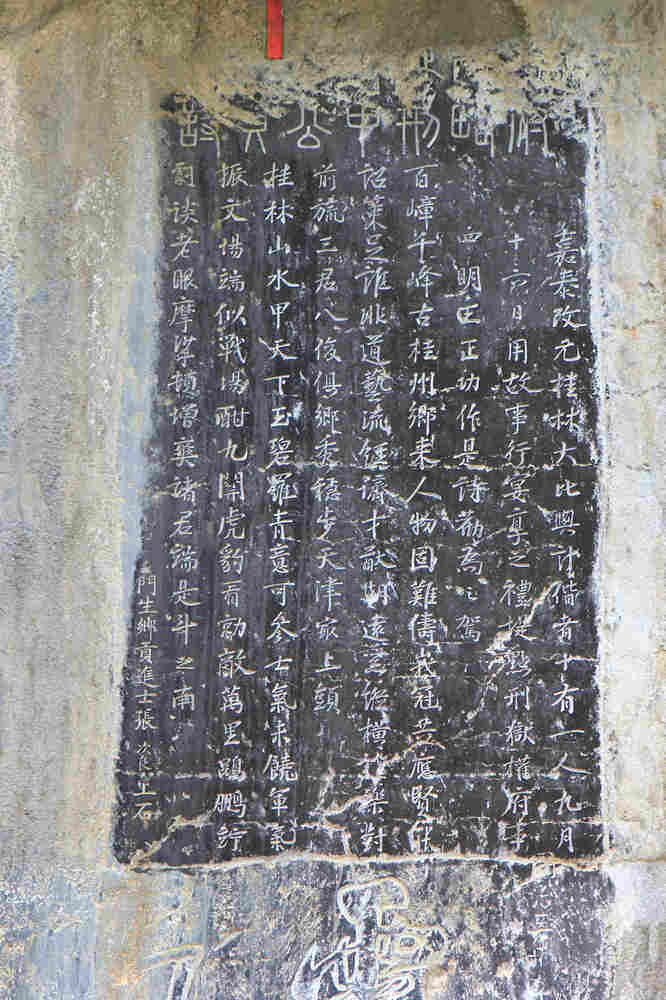 嘉泰改元桂林大比與計偕者十有一人九月
十六日用故事行宴享之禮提點刑獄權府事
四明王正功作是詩勸為之駕
百嶂千峰古桂州鄉来人物固難儔峩冠共應賢能
詔策足誰非道藝流經濟才猷期遠器縱橫禮樂對
前旒三君八俊俱鄉秀穩步天津冣上頭
桂林山水甲天下玉碧羅青意可參士氣未饒軍氣
振文場端似戰場酣九關虎豹看勍敵萬里鵾鵬佇
劇談老眼摩挲頓增爽諸君端是斗之南
門生鄉貢進士張次良上石